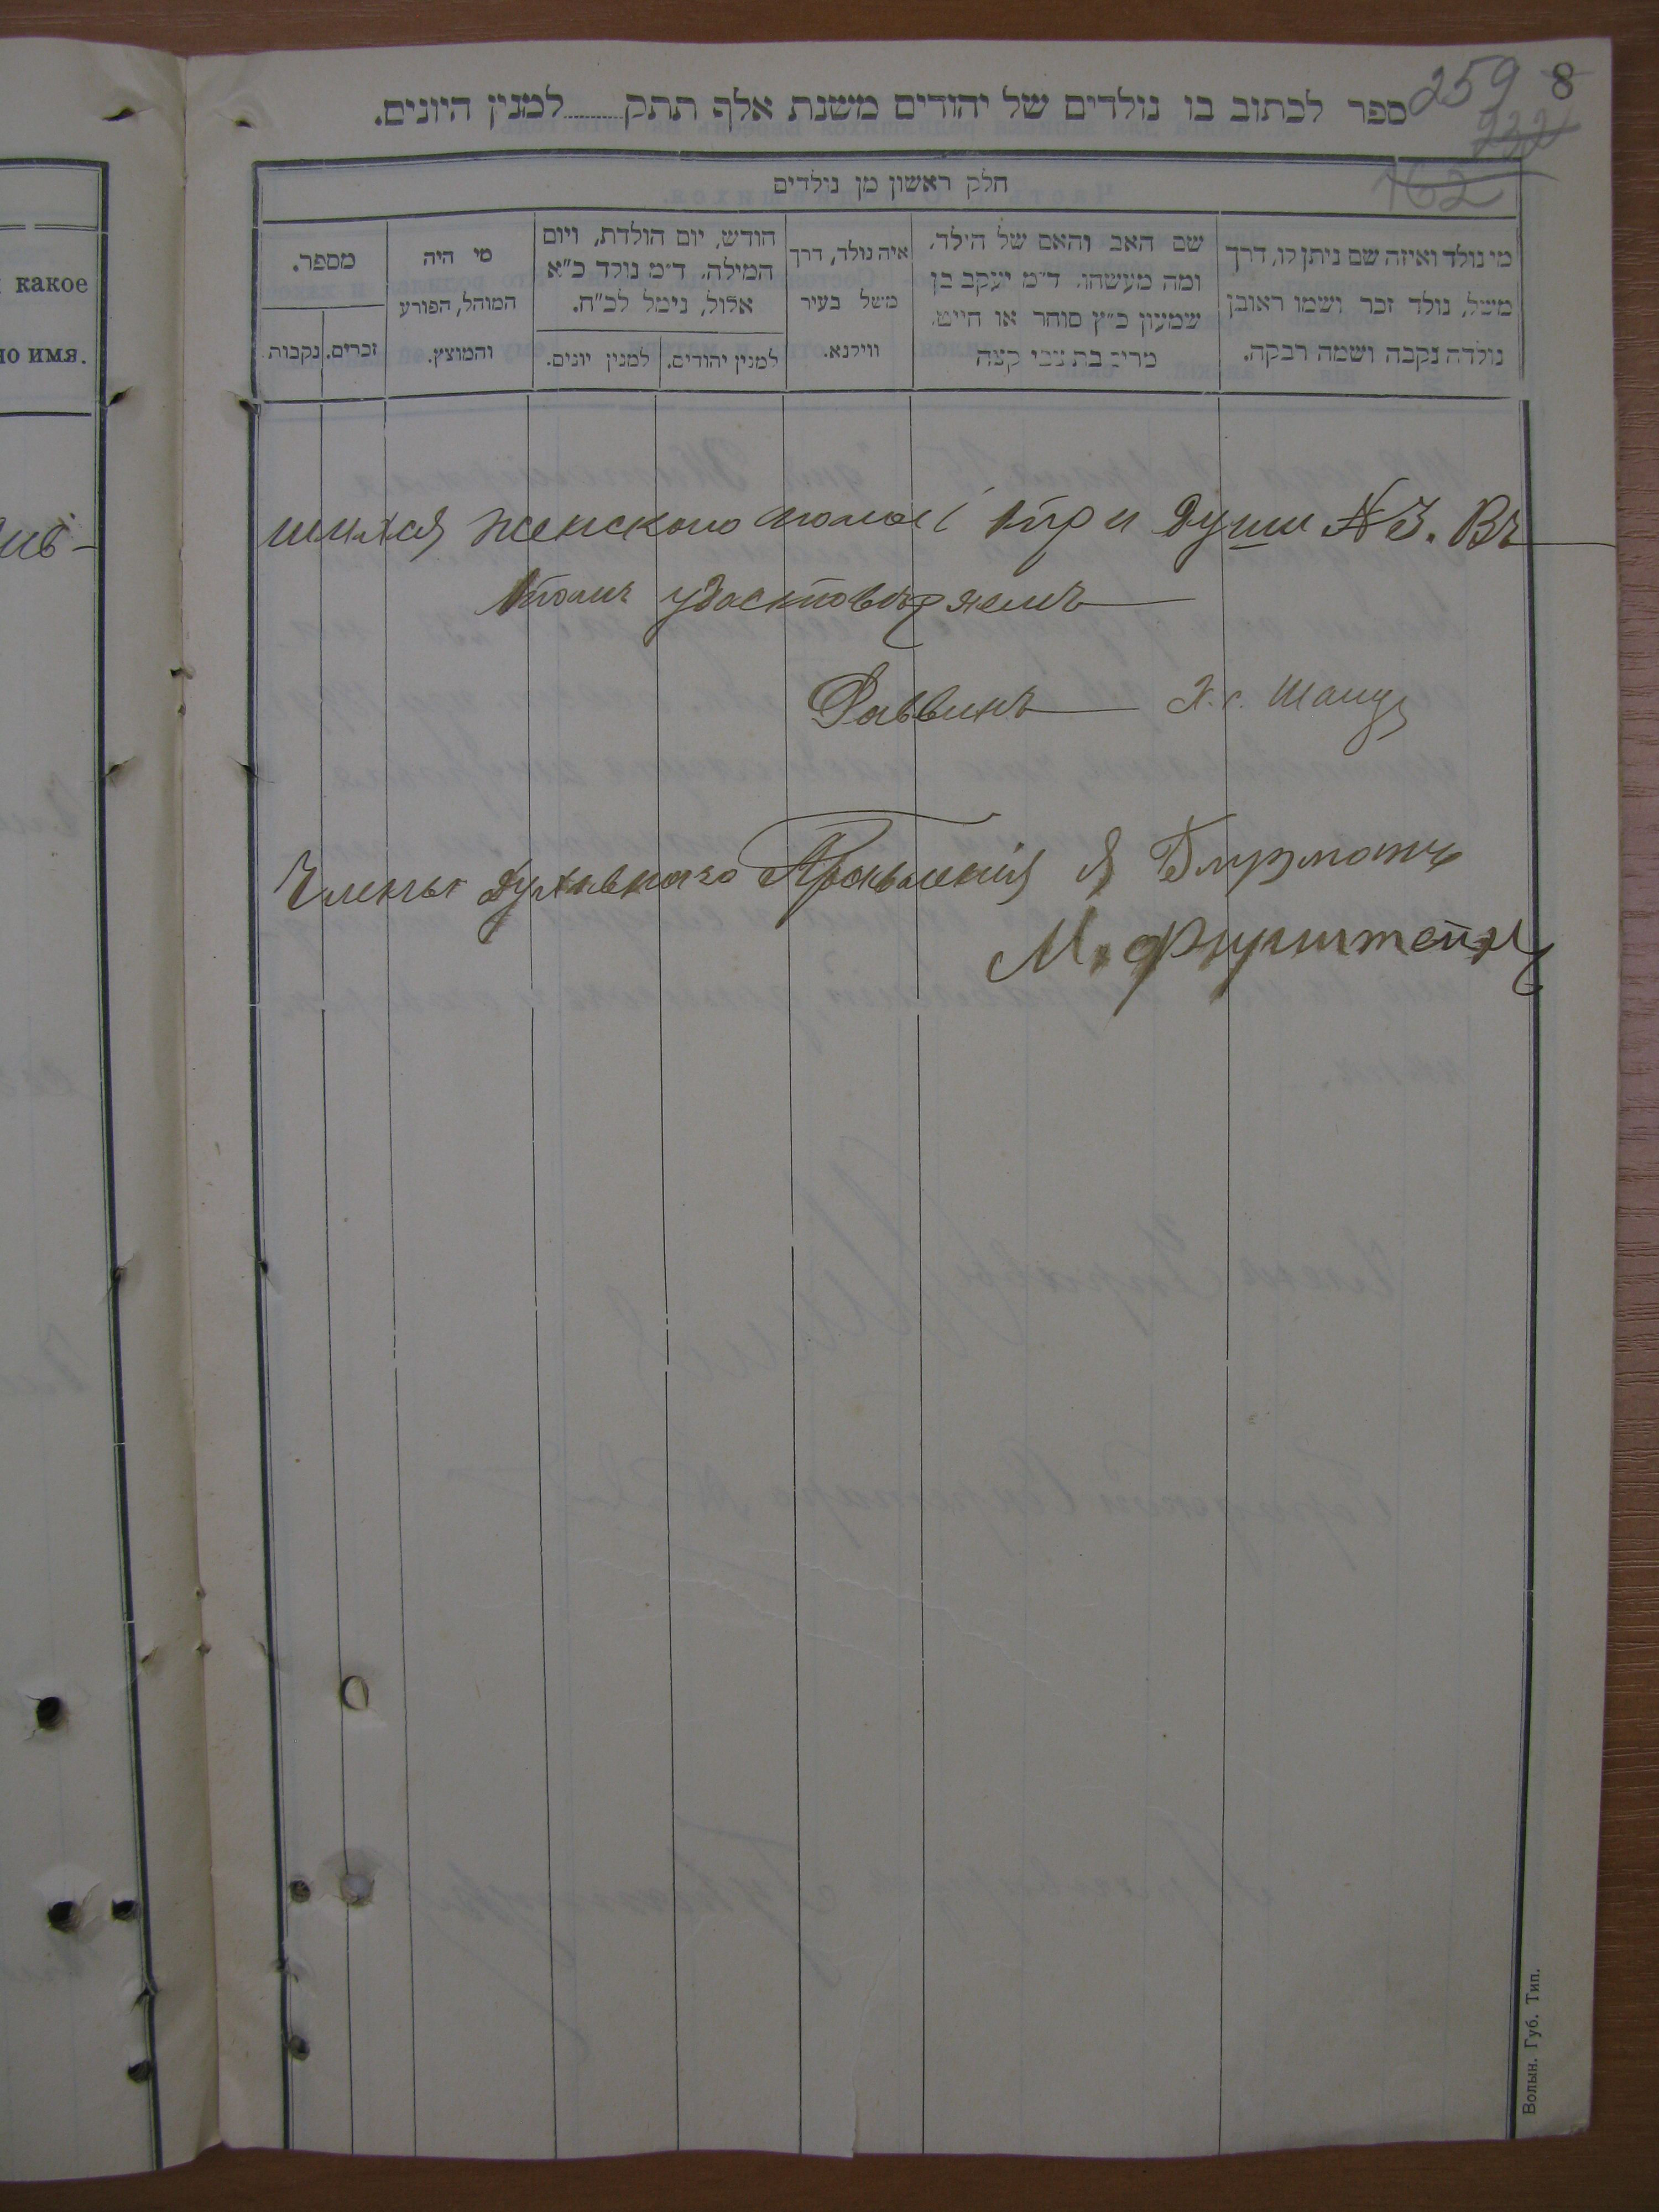 259 8
232
162
ספר לכתוב בו נולדים של יהודים משנת אלף תתק......למנין היונים.
חלק ראשון מן נולדים
מי נולד ואיזה שם ניתן לו, דרך
משל, נולד זכר ושמו ראובן
נולדה נקבה ושמה רבקה.
שם האב והאם של הילד,
ומה מעשהו. ד״מ יעקב בן
שמעון כ״ץ סוחר או חייט,
מרים בת צבי קצה
איה נולד, דרך
משל בעיר
ווילנא.
חודש, יום הולדת, ויום
המילה. ד״מ נולד כ״א
אלול, נימל לכ״ח.
למנין יהודים.
למנין יונים.
מי היה
המוהל, הפורע
והמוצץ.
מספר.
זכרים.
נקבות.
какое
но имя.
шихся женскаго пола три души №3. Въ
томъ удостовѣряемъ
Раввинъ Х. Г. Шапу
Члены духовнаго Правленія Я
М. Фурштейнъ
Волын. Губ. Тип.